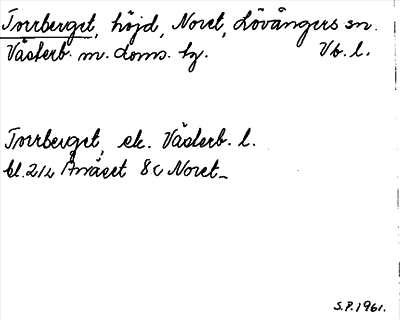 Torrberget, höjd, Noret, Lövångers sn.
Västerb. m. doms. tg. Vb. l.
Torrberget, ek. Västerb. l.
bl. 21c Ånäset 8c Noret
S.P. 1961.